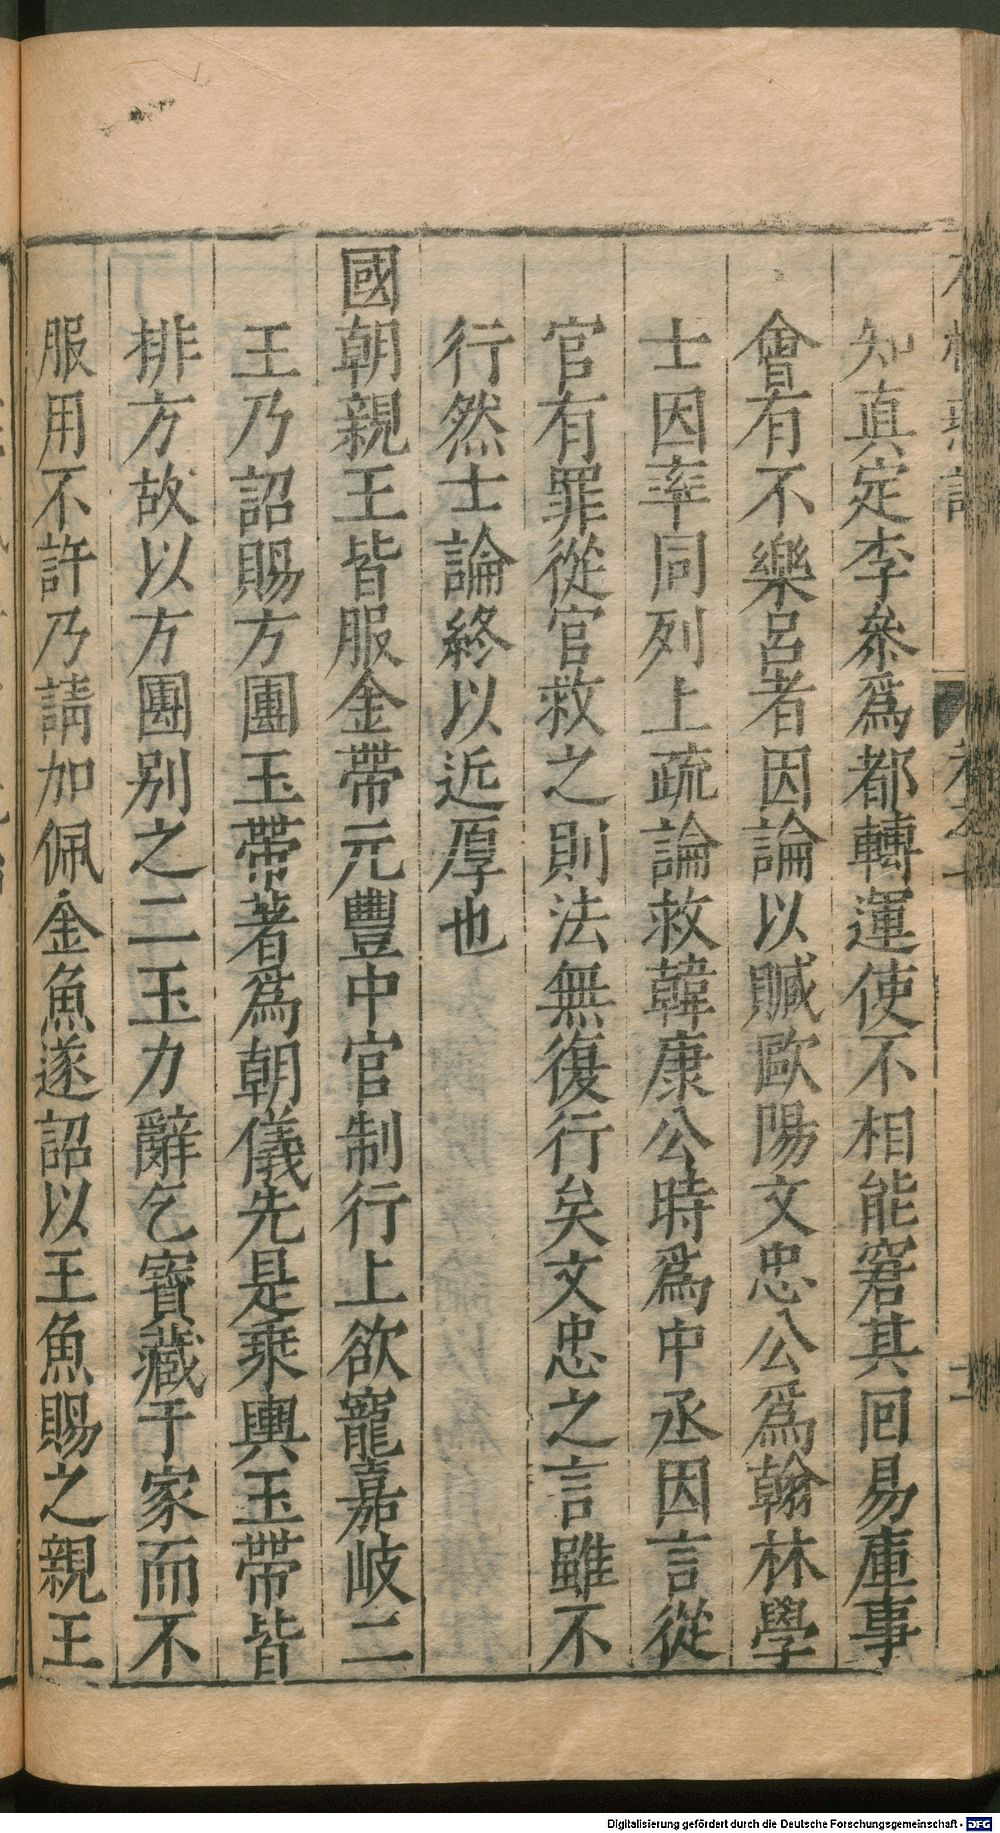 知真定李叅爲都轉運使不相能窘其回易庫事
會有不樂呂者因論以贓歐陽文忠公爲翰林學
士因率同列上疏論救韓康公時爲中丞因言從
官有罪從官救之則法無復行矣文忠之言雖不
行然士論終以近厚也
國朝親王皆服金帶元豐中官制行上欲寵嘉岐二
王乃詔賜方團玉帶著爲朝儀先是乘輿玉帶皆
排方故以方團别之二王力辭乞寶藏于家而不
服用不許乃請加佩金魚遂詔以玉魚賜之親王
Digitalisierung gefördert durch die Deutsche Forschungsgemeinschaft - DFG